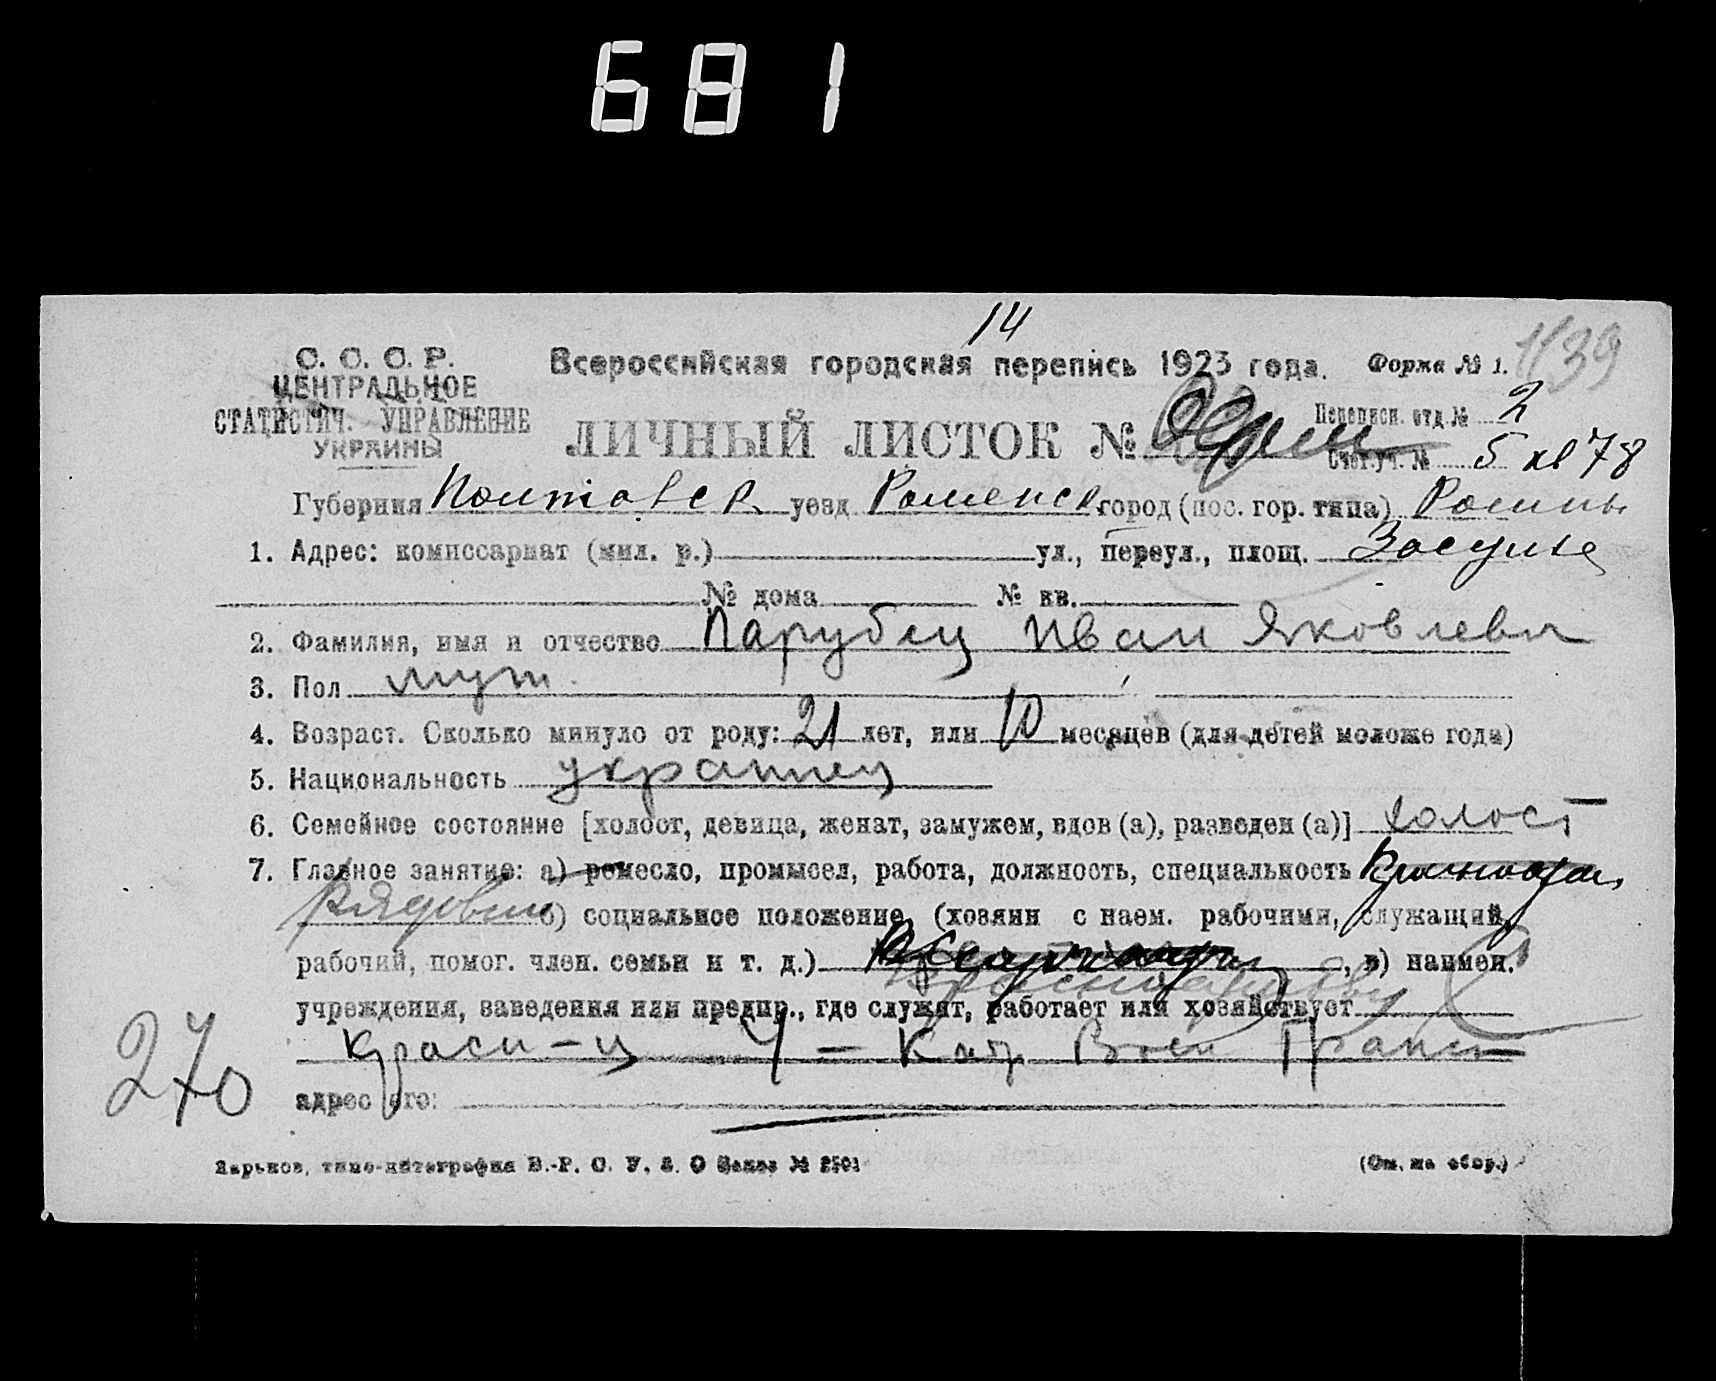 681
14
С. С. С. Р. Всероссийская городская перепись 1923 года. Форма № 1. 1139
ЦЕНТРАЛЬНОЕ
СТАТИСТИЧ. УПРАВЛЕНИЕ
УКРАИНЫ
ЛИЧНЫЙ ЛИСТОК №
Переписн. отд. № 2
Счет. уч. № 5 кв 78
Губерния Полтавск уезд Роменск город (пос. гор. типа) Ромны
1. Адрес: комиссариат (мил. р.) ул., переул., площ. Засулье
№ дома № кв.
2. Фамилия, имя и отчество Парубец Иван Яковлевич
3. Пол муж.
4. Возраст. Сколько минуло от роду: 21 лет, или 10 месяцев (для детей моложе года)
5. Национальность украинец
6. Семейное состояние [холост, девица, женат, замужем, вдов (а), разведен (а)] холост
7. Главное занятие: а) ремесло, промысел, работа, должность, специальность
Рядовым б) социальное положение (хозяин с наем. рабочими, служащий,
рабочий, помог. член. семьи и т. д.) , в) наимен.
учреждения, заведения или предпр., где служит, работает или хозяйствует
Красн-ц
адрес его:
270
Харьков, типо-литография В.-Р. С. У. В. О Заказ №
(См. на обор.)